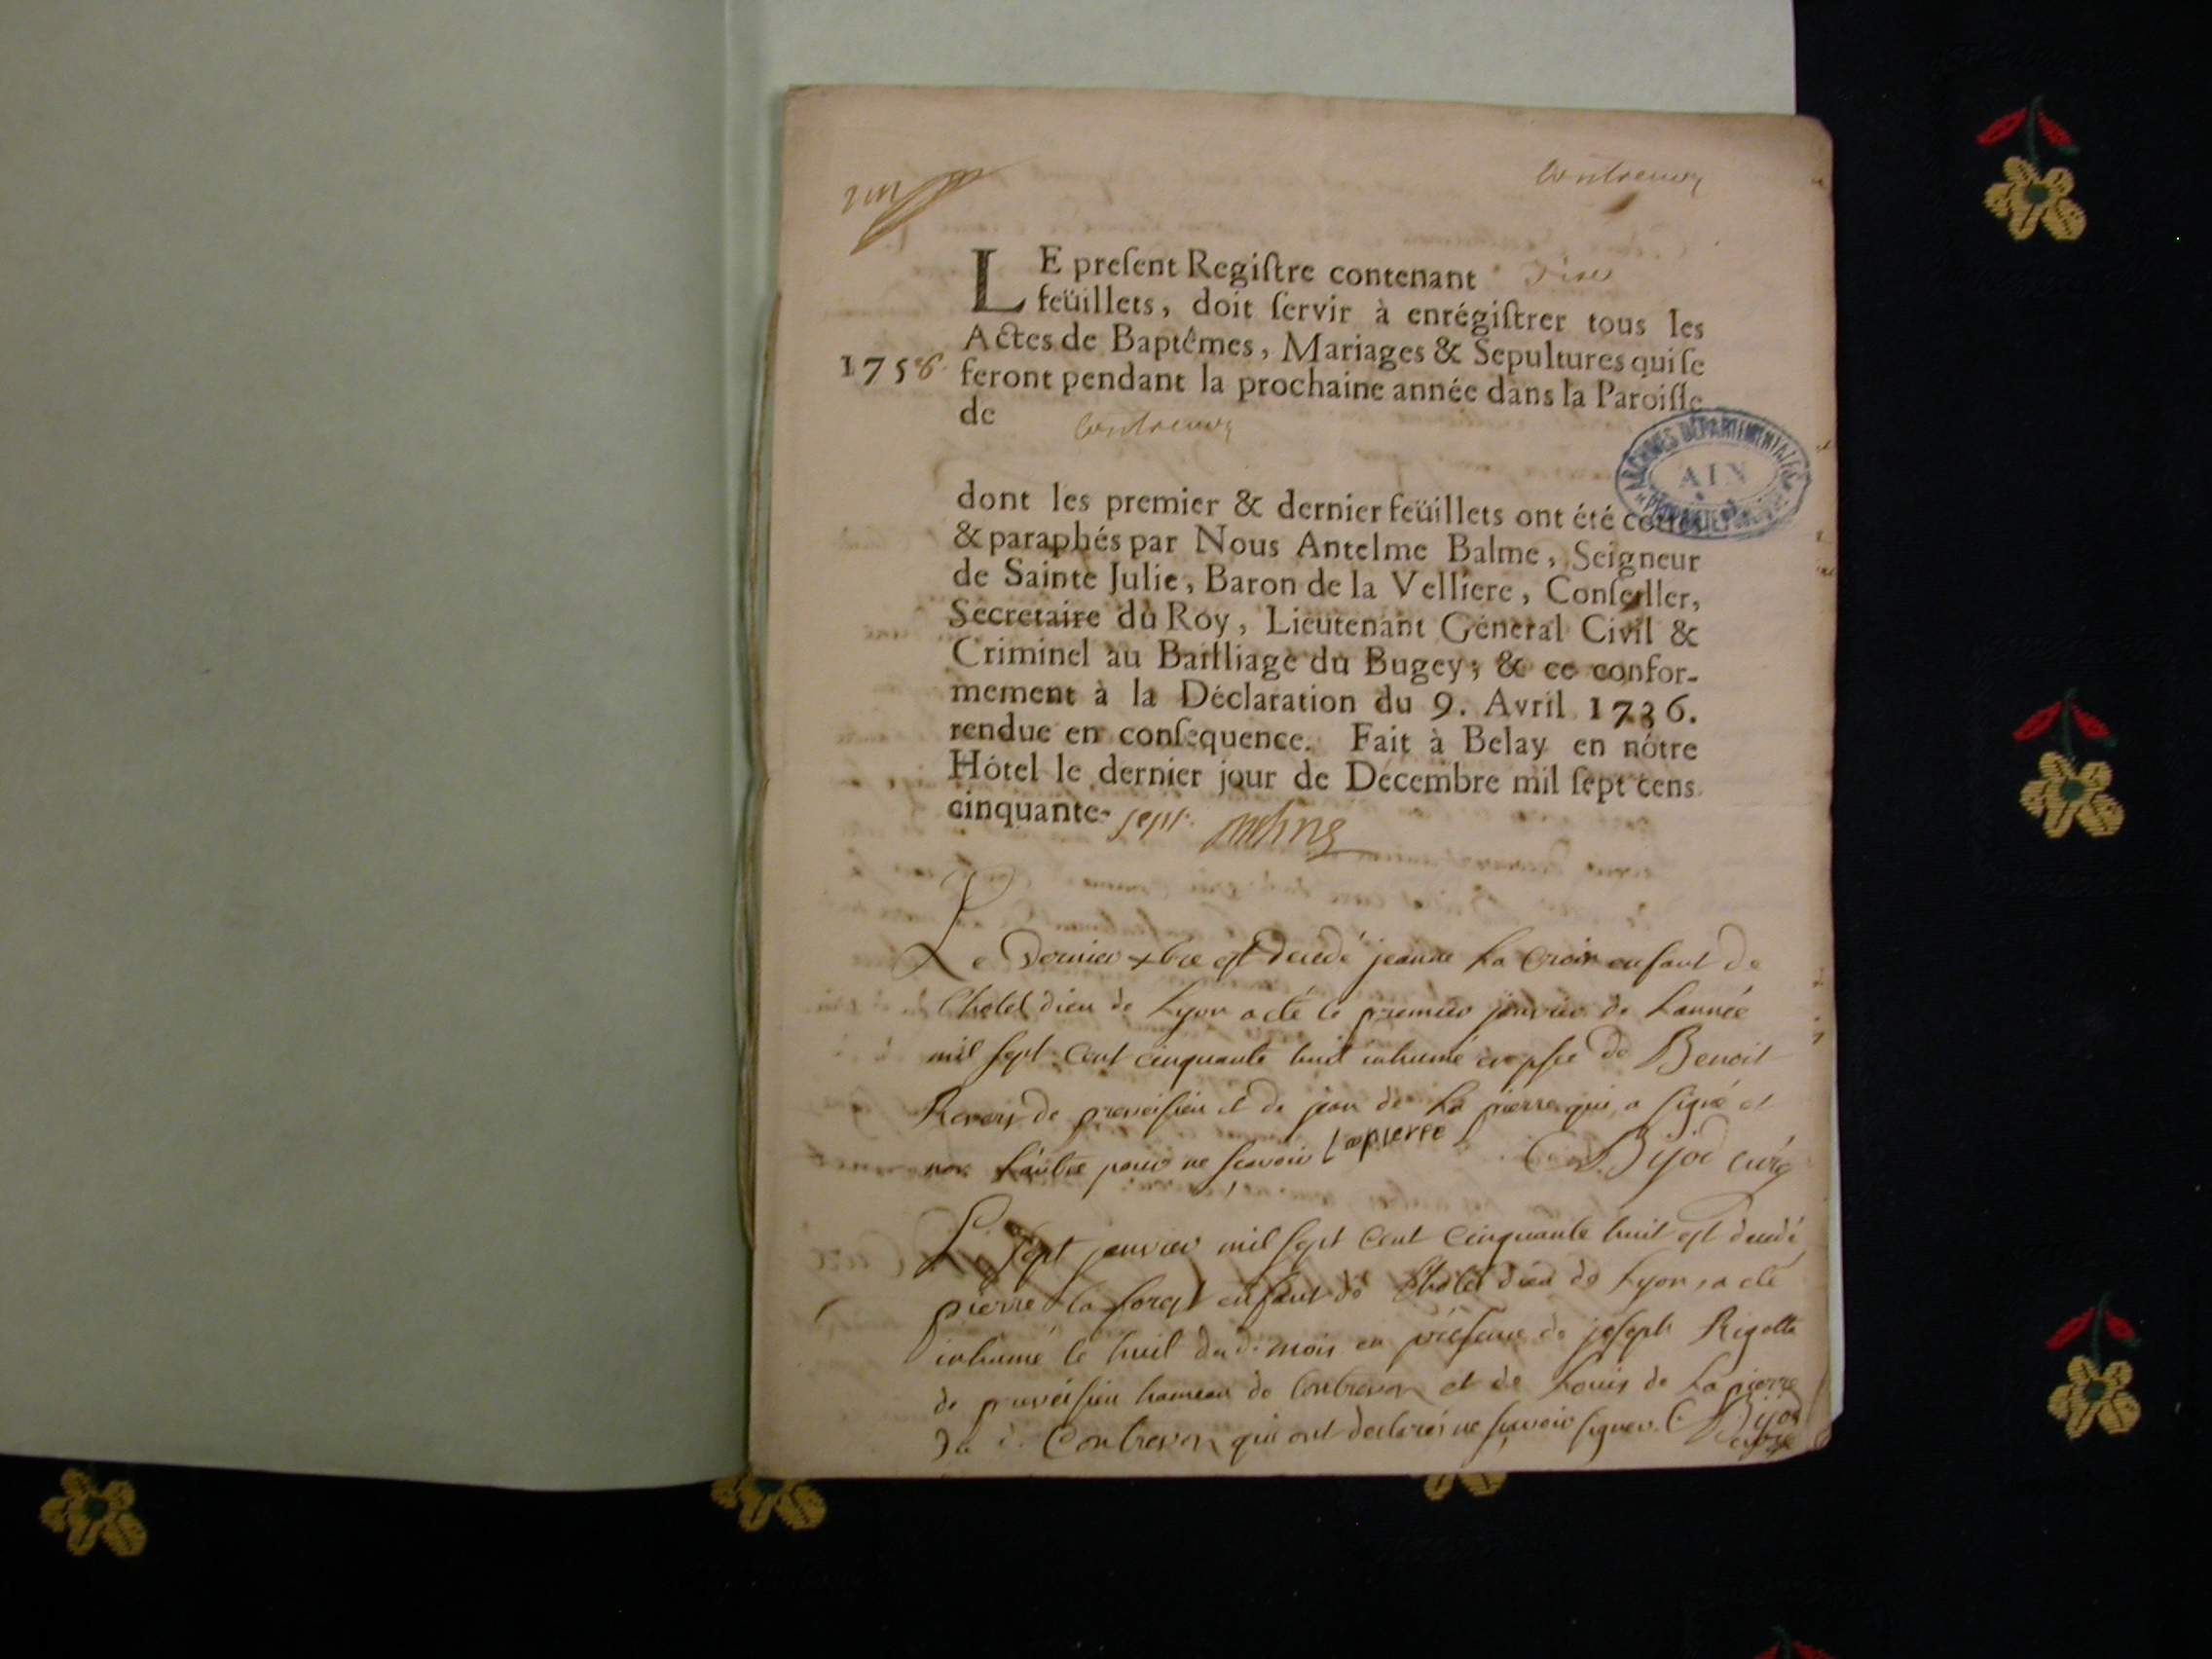 Contrevoz
LE preſent Regiſtre contenant Six
feüillets, doit ſervir à enrégiſtrer tous les
Actes de Baptêmes, Mariages & Sepultures qui ſe
1758. feront pendant la prochaine année dans la Paroiſſe
de Contrevoz
ARCHIVES DÉPARTEMENTALES
AIN
dont les premier & dernier feüillets ont été cottés
& paraphés par Nous Antelme Balme, Seigneur
de Sainte Julie, Baron de la Velliere, Conſeiller,
Secretaire du Roy, Lieutenant Géneral Civil &
Criminel au Bailliage du Bugey; & ce confor-
mement à la Déclaration du 9. Avril 1736.
rendue en conſequence. Fait à Belay en nôtre
Hôtel le dernier jour de Decembre mil ſept cens
cinquante-sept.
Le Dernier xbre est decedé jeanne La Croix enfant De
l'hotel dieu de Lyon a eté le premier janvier de L'année
mil sept cent cinquante huit inhumé en psce De Benoit
de preveisieu et de jean de La pierre qui a signé et
non L'autre pour ne scavoir Lapierre Bijod curé
Le sept janvier mil sept cent cinquante huit est decedé
pierre la forest enfant de l'hotel dieu de Lyon, a eté
inhumé le huit dud. mois en présence de joseph Rigollet
de preveisieu hameau de Contrevoz et de Louis de La pierre
du d. Contrevoz qui ont declarés ne scavoir signer. Bijod
curé